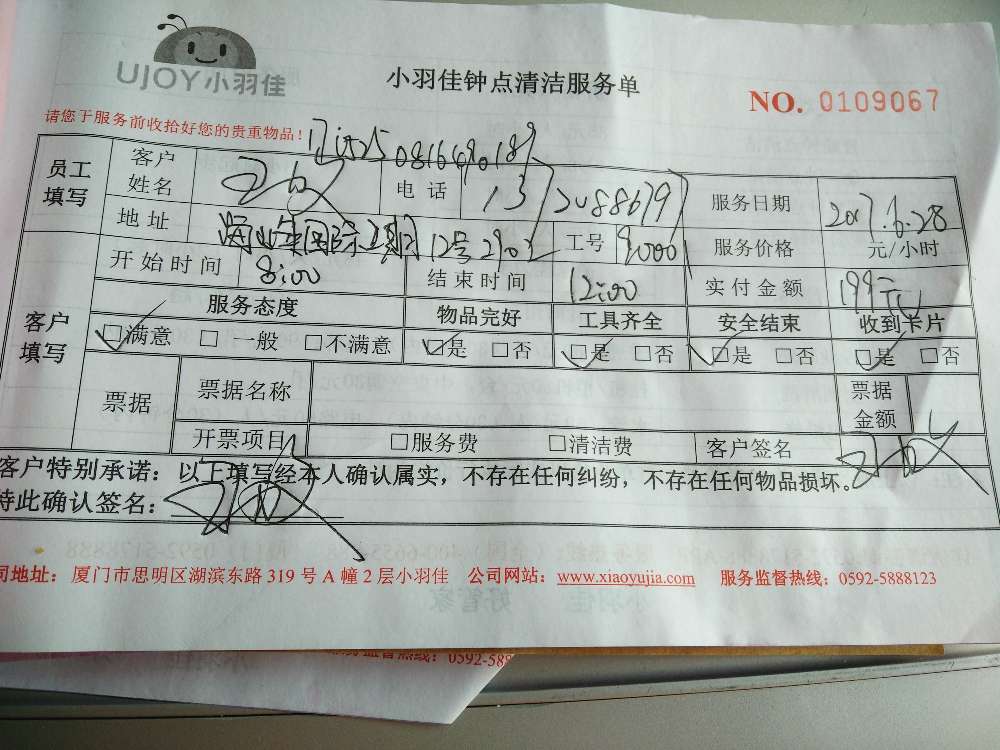 UJOY小羽佳
小羽佳钟点清洁服务单
NO. 0109067
请您于服务前收拾好您的贵重物品！
员工填写 客户姓名 电话 服务日期 2017.6.28
地址 12号 工号 服务价格 元/小时
开始时间 8:00 结束时间 12:00 实付金额 199元
客户填写 服务态度 物品完好 工具齐全 安全结束 收到卡片
□满意 □一般 □不满意 □是 □否 □是 □否 □是 □否 □是 □否
票据 票据名称 票据金额
开票项目 □服务费 □清洁费 客户签名
客户特别承诺：以上填写经本人确认属实，不存在任何纠纷，不存在任何物品损坏。
特此确认签名：
司地址：厦门市思明区湖滨东路319号A幢2层小羽佳 公司网站：www.xiaoyujia.com 服务监督热线：0592-5888123